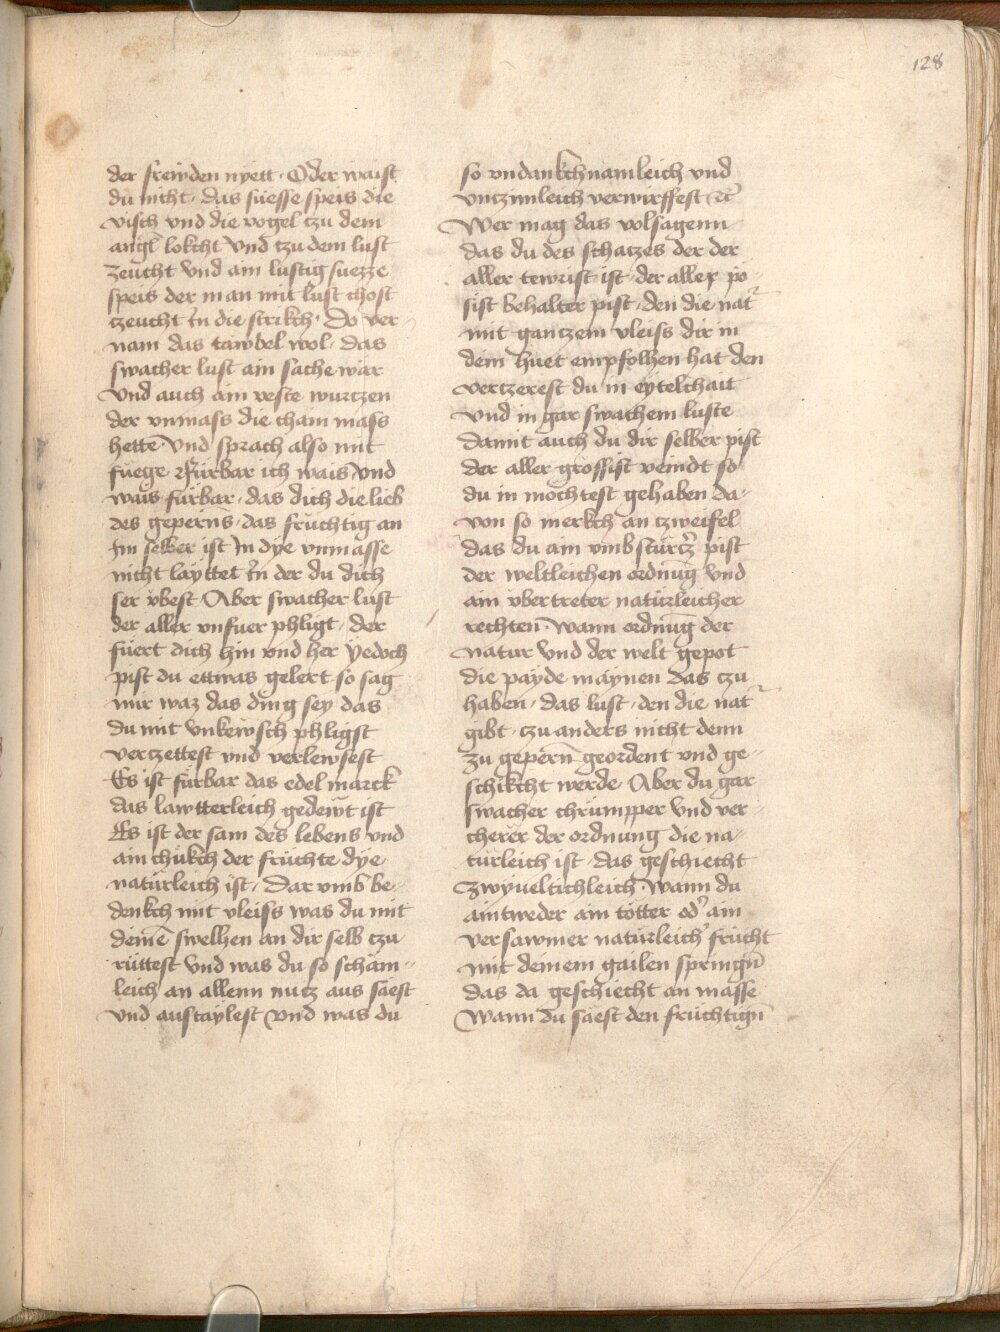 128
der frewden nyett · Oder waist
du nicht · das suesse speis die
visch vnd die vogel czu dem
angl lokcht Vnd czu dem lust
zeucht Vnd ain lustig suezze
speis der man mit lust chost
czeucht In die strikch · Do ver-
nam das tawbel wol · das
swacher lust ain sache wär
Vnd auch ain veste wurczen
der vnmass die chain mass
hette · Vnd sprach also mit
fuege Fürbar ich wais Vnd
wais fürbar · das dich die lieb
des geperns · das früchtig an
Im selber ist In dye vnmasse
nicht layttet In der du dich
ser vbest Aber swacher lust
der aller vnfuer phligt · der
fuert dich hin vnd her Yedoch
pist du ettwas gelert so sag
mir waz das ding sey das
du mit Vnkewsch phligst
verczettest vnd verlewsest
Es ist fürbar das edel marck
das lawtterleich gedewt ist
Es ist der sam des lebens vnd
ain chukch der früchte dye
natürleich ist · Dar vmb be-
denkch mit vleiss was du mit
deinē swelhen an dir selb czu
rüttest Vnd was du so schäm-
leich an allenn nutz aus säest
vnd austaylest Vnd was du
so vndankchnämleich vnd
vnczimleich verwirffest ꝛc̄
Wer mag das volsagenn
das du des schatzes der der
aller tewrist ist · der aller pö-
sist behalter pist · den die nat᷑
mit gantzem vleiss dir in
dem huet empfolhen hat den
verczerest du in eytelchait
vnd in gar swachem luste
damit auch du dir selber pist
der aller grossist veindt so
du in möchtest gehaben da-
von so merkch an czweifel
das du ain vmbstürcz᷑ pist
der weltleichen ordnūg Vnd
ain vbertreter natürleicher
rechten · Wann ordnūg der
natur Vnd der welt gepot
die payde maynen das czu
haben · das lust · den die nat᷑
gibt · czu anders nicht denn
zu gepern̄ geordent vnd ge-
schikcht werde Aber du gar
swacher chrumpper Vnd ver-
cherer der ordnung die na-
türleich ist · das geschiecht
zwyueltichleich · Wann du
aintweder ain tötter od᷑ ain
versawmer natürleich᷑ frücht
mit deinem gailen springn̄
das da geschiecht an masse
Wann du säest den früchtign̄